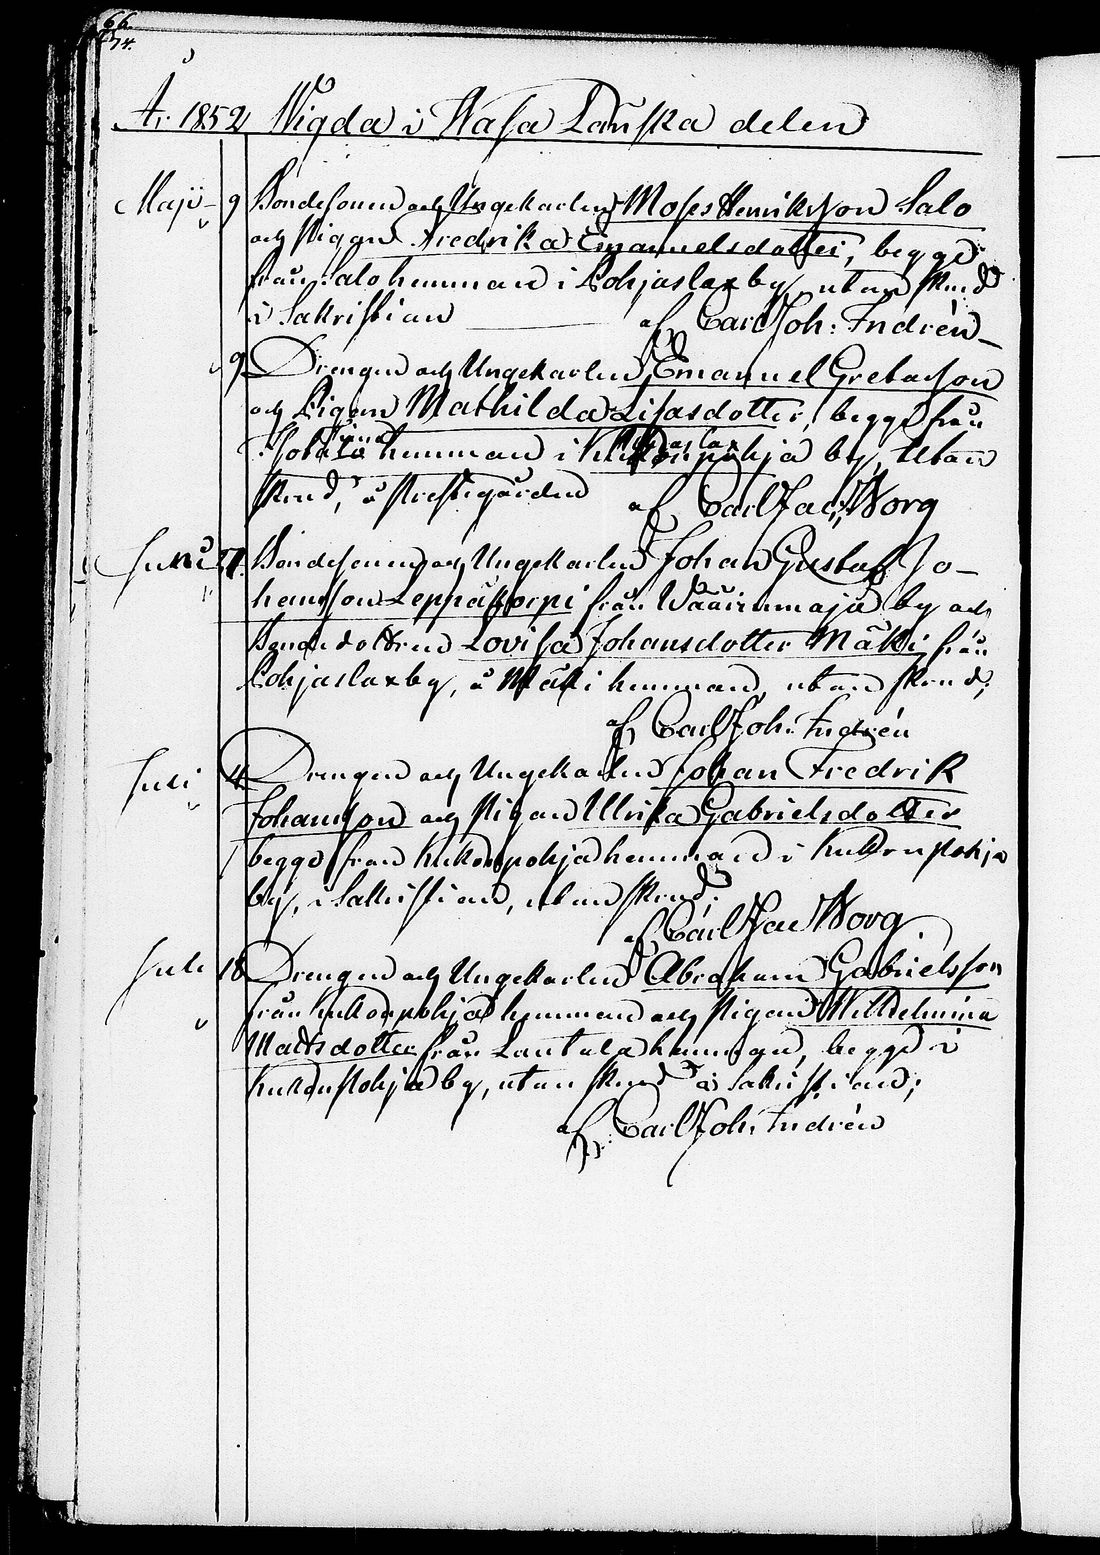 66.
74.
År 1852 Wigda i Wasa Länska delen
Maji 9 Bondesonen och Ungekarlen Moses Henriksson Salo
och Pigan Fredrika Emanuelsdotter, begge
från Salo hemman i Lohjaslax by, utan skrud
i Sakristian
af Carl Joh: Indrén
9 Drengen och Ungekarlen Emanuel Gretasson
och Pigan Mathilda Lisasdotter, begge från
hemman i by, utan
skrud, å Prestegården af Carl Jac: Worg
Juni Bondesonen och Ungekarlen Johan Gustaf Jo-
hansson Leppäkorpi från Väärinmaja by och
Bondedottren Lovisa Johansdotter Mäki, från
Lohjaslax by, å Mäki hemman, utan skrud;
af Carl Joh: Indrén
Juli 4 Drengen och Ungekarlen Johan Fredrik
Johansson och Pigan Ulrika Gabrielsdotter
begge från Kukonpohja hemman i Kukonpohja
by, i Sakristian, utan skrud;
af Carl Jac Worg
Juli 18 Drengen och Ungekarlen Abraham Gabrielsson
från Kukonpohja hemman och Pigan Wilhelmina
Mattsdotter från Lantala hemman, begge i
Kukonpohja by, utan skrud i Sakristian;
af Carl Joh: Indrén